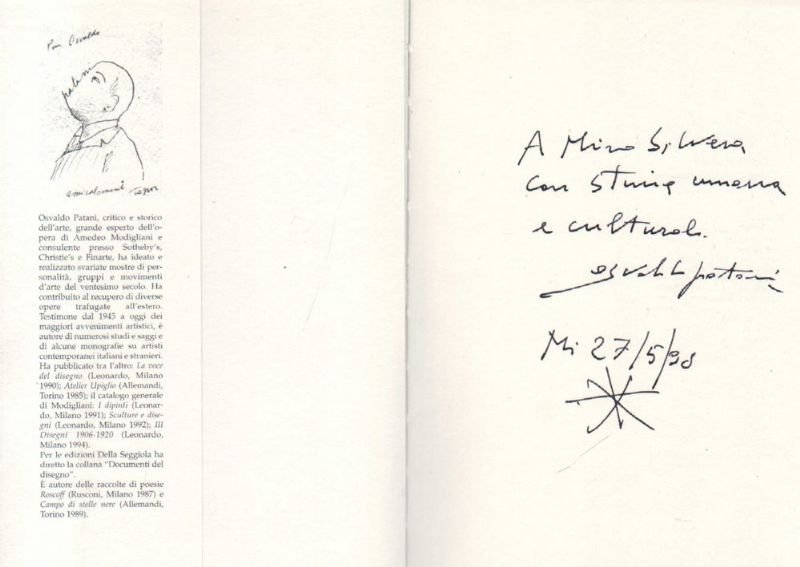 Per Osvaldo
patani
amicalement Topor
Osvaldo Patani, critico e storico
dell'arte, grande esperto dell'o-
pera di Amedeo Modigliani e
consulente presso Sotheby's,
Christie's e Finarte, ha ideato e
realizzato svariate mostre di per-
sonalità, gruppi e movimenti
d'arte del ventesimo secolo. Ha
contribuito al recupero di diverse
opere trafugate all'estero.
Testimone dal 1945 a oggi dei
maggiori avvenimenti artistici, è
autore di numerosi studi e saggi e
di alcune monografie su artisti
contemporanei italiani e stranieri.
Ha pubblicato tra l'altro: La voce
del disegno (Leonardo, Milano
1990); Atelier Upiglio (Allemandi,
Torino 1985); il catalogo generale
di Modigliani: I dipinti (Leonar-
do, Milano 1991); Sculture e dise-
gni (Leonardo, Milano 1992); III
Disegni 1906-1920 (Leonardo,
Milano 1994).
Per le edizioni Della Seggiola ha
diretto la collana "Documenti del
disegno".
È autore delle raccolte di poesie
Roscoff (Rusconi, Milano 1987) e
Campo di stelle nere (Allemandi,
Torino 1989).
A Mino Silvera
con stima umana
e culturale.
osvaldo patani
Mi 27/5/98